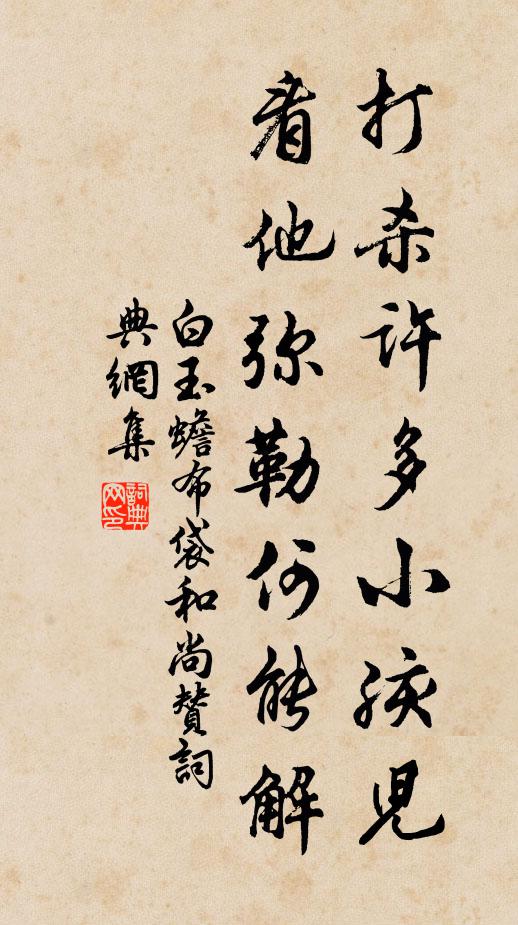 打杀许多小孩儿
看他弥勒何能解
白玉蟾布袋和尚赞词
典網集
詞典網印